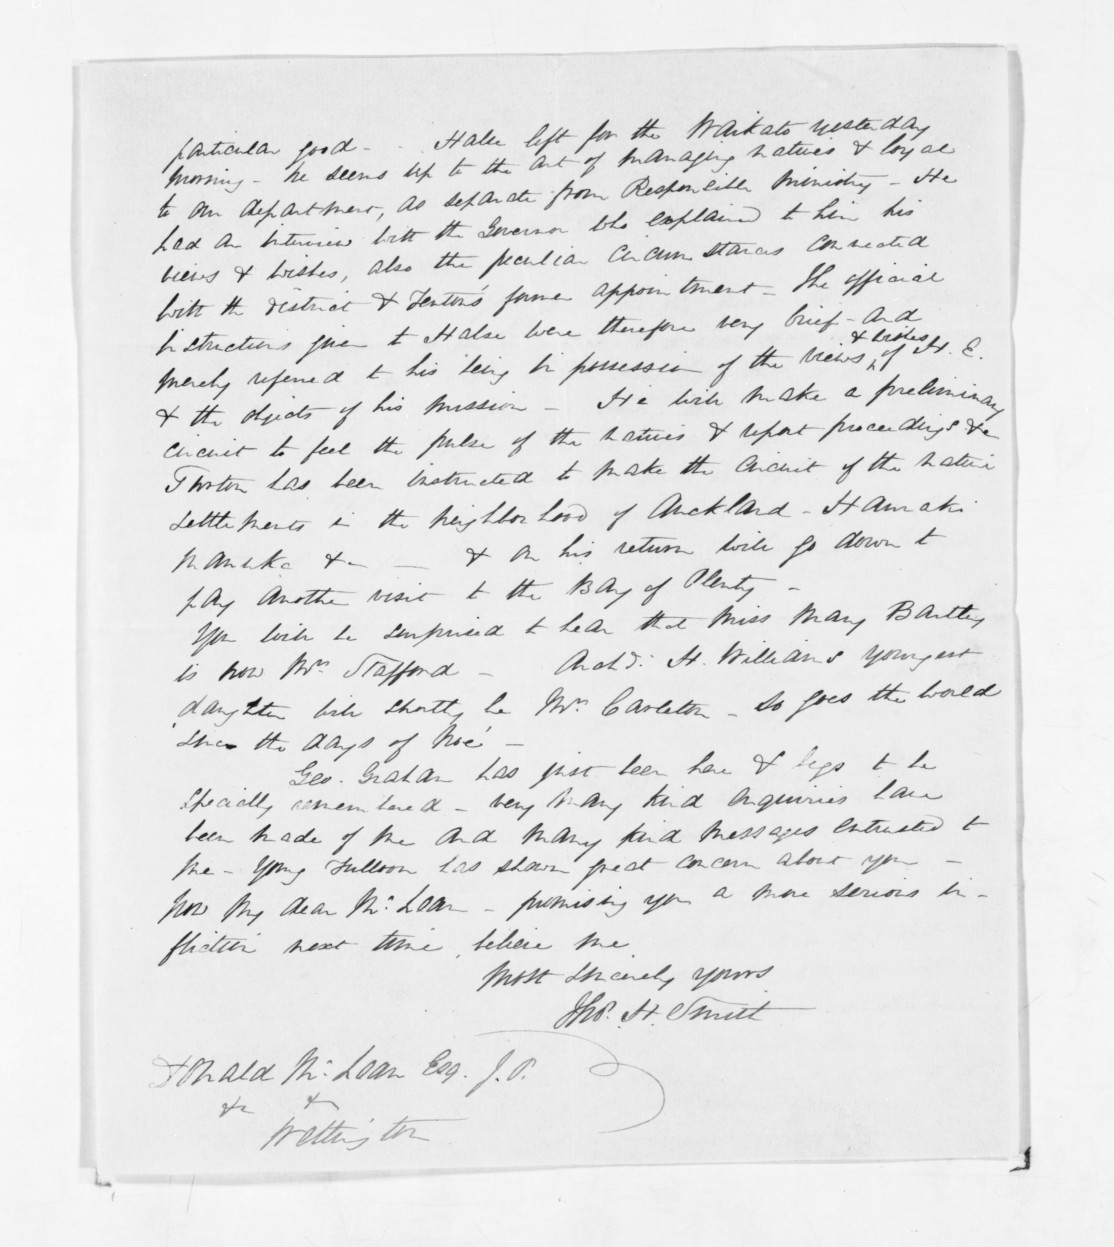 particular good - . Halse left for the Waikato yesterday
morning - he seems up to the art of managing natives & loyal
to our department, as separate from Responsible Ministry - He
had an interview with the Governor who explained to him his
views & wishes, also the peculiar circumstances connected
with the district & Fenton's former appointment - The official
instructions given to Halse were therefore very brief - and
merely referred to his being in possession of the views & wishes of H. E.
& the objects of his mission - He will make a preliminary
circuit to feel the pulse of the natives & report proceedings &c
has been instructed to make the circuit of the native
settlements in the neighborhood of Auckland - Hauraki
Manuka &c - & on his return will go down to
pay another visit to the Bay of Plenty -
You will be surprised to hear that Miss Mary Bartley
is now Mrs Stafford - Archd. H. Williams youngest
daughter will shortly be Mrs Carleton - So goes the world
'since the days of Noe' -
Geo. Graham has just been here & begs to be
specially remembered - very many kind enquiries have
been made of me and many kind messages entrusted to
me - Young Fulloon has shown great concern about you -
Now my dear McLean - promising you a more serious in-
fliction next time, believe me
Most sincerely yours
Thos. H. Smith
Donald McLean Esq. J.P.
&c &c
Wellington